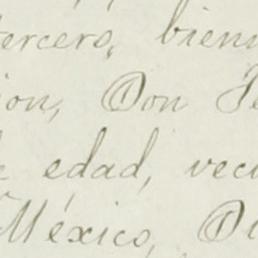 tercero, bien
ion, Don Je
e edad, veci
México, D